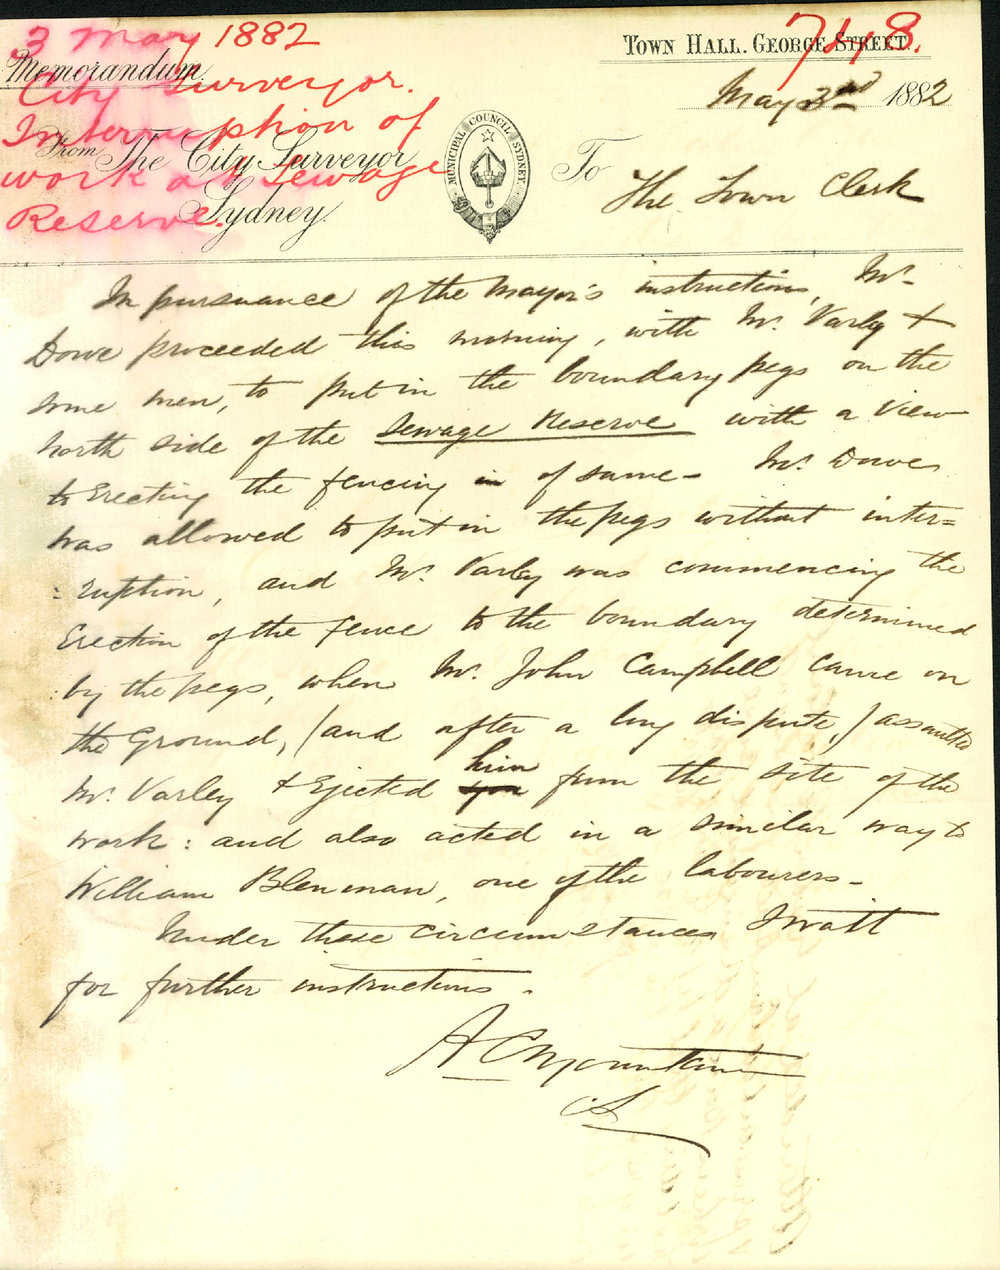 3 May 1882
748.
City Surveyor.
Interruption of
work at Sewage
Reserve.
Memorandum
TOWN HALL. GEORGE STREET.
May 3rd 1882
From The City Surveyor
Sydney.
MUNICIPAL COUNCIL SYDNEY.
To The Town Clerk
In pursuance of the Mayor's instructions, Mr.
Dowe proceeded this morning, with Mr. Varley +
some men, to put in the boundary pegs on the
north side of the Sewage Reserve with a view
to Erecting the fencing in of same - Mr. Dowe
was allowed to put in the pegs without inter=
:ruption, and Mr. Varley was commencing the
Erection of the fence to the boundary determined
by the pegs, when Mr. John Campbell came on
the Ground, (and after a long dispute,) assaulted
Mr. Varley & Ejected you him from the site of the
work: and also acted in a similar way to
William Blenman, one of the labourers -
Under these circumstances I wait
for further instructions -
A C Mountain
CS